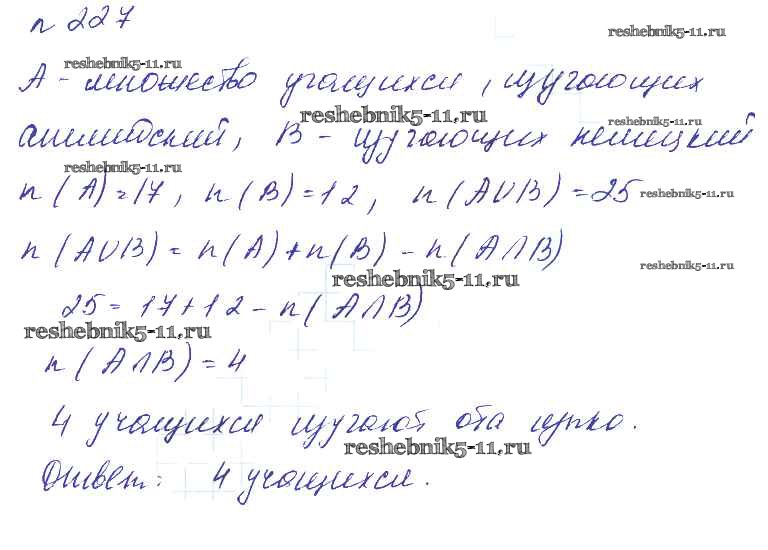 n 227
reshebnik5-11.ru
reshebnik5-11.ru
A - множество учащихся, изучающих
reshebnik5-11.ru
reshebnik5-11.ru
английский, B - изучающих немецкий
reshebnik5-11.ru
n(A)=17, n(B)=12, n(A∪B)=25
reshebnik5-11.ru
n(A∪B)=n(A)+n(B)-n(A∩B)
reshebnik5-11.ru
reshebnik5-11.ru
25=17+12-n(A∩B)
reshebnik5-11.ru
n(A∩B)=4
4 учащихся изучают оба языка.
reshebnik5-11.ru
Ответ: 4 учащихся.